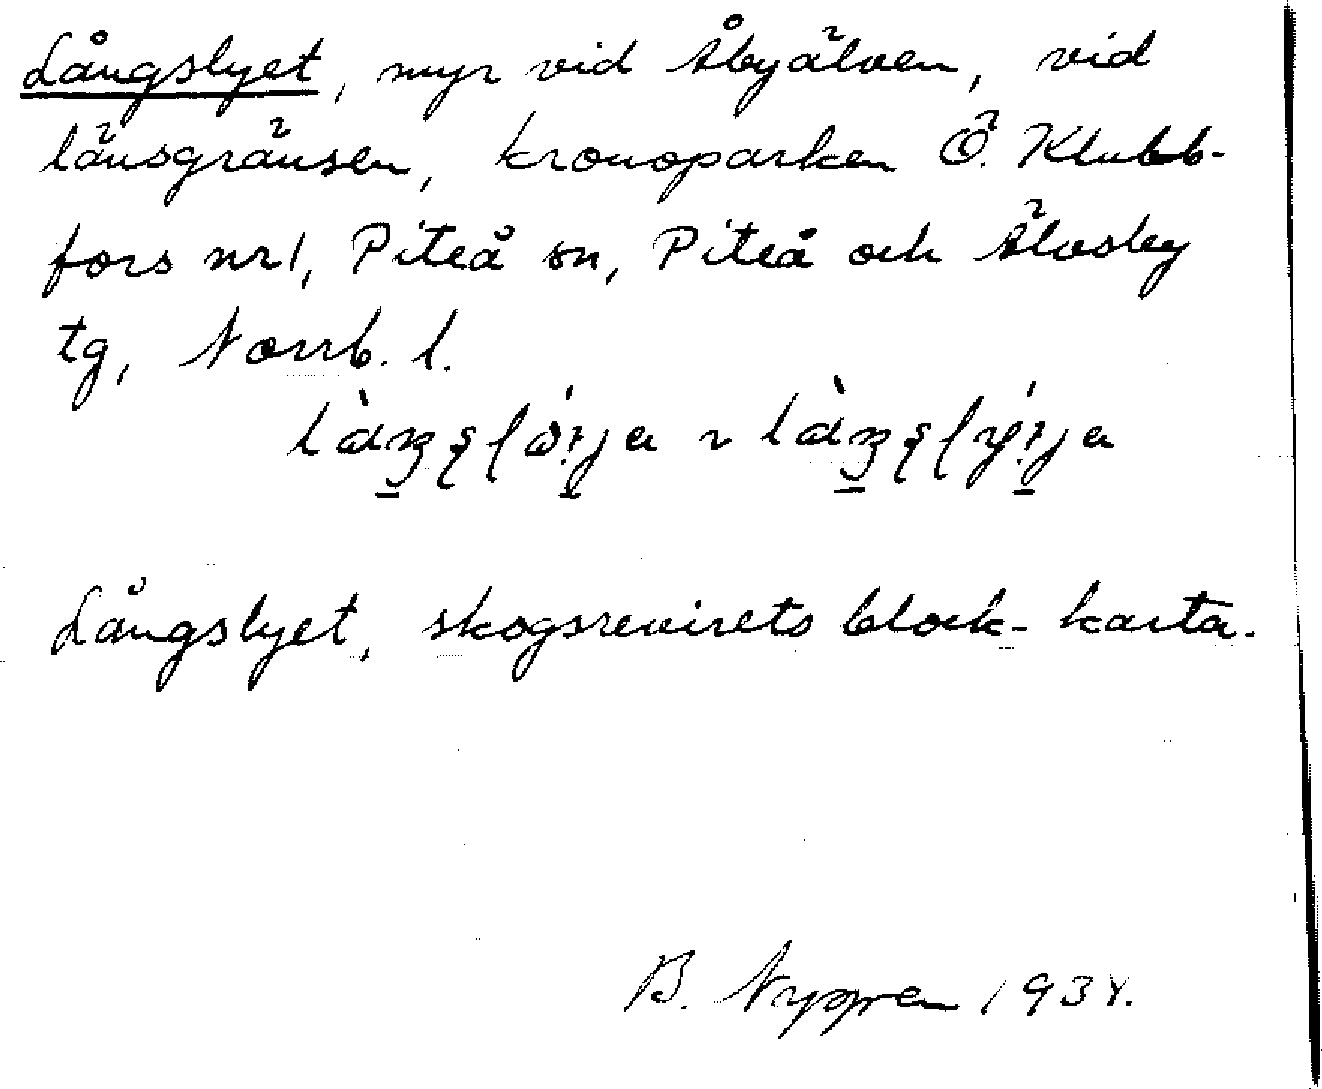 Långslyet, myr vid Åbyälven, vid
länsgränsen, kronoparken Ö. Klubb-
fors nr 1, Piteå sn, Piteå och Älvsby
tg, Norrb. l.
Långslyet, skogsrevirets block-karta.
B. Nyppen 1934.